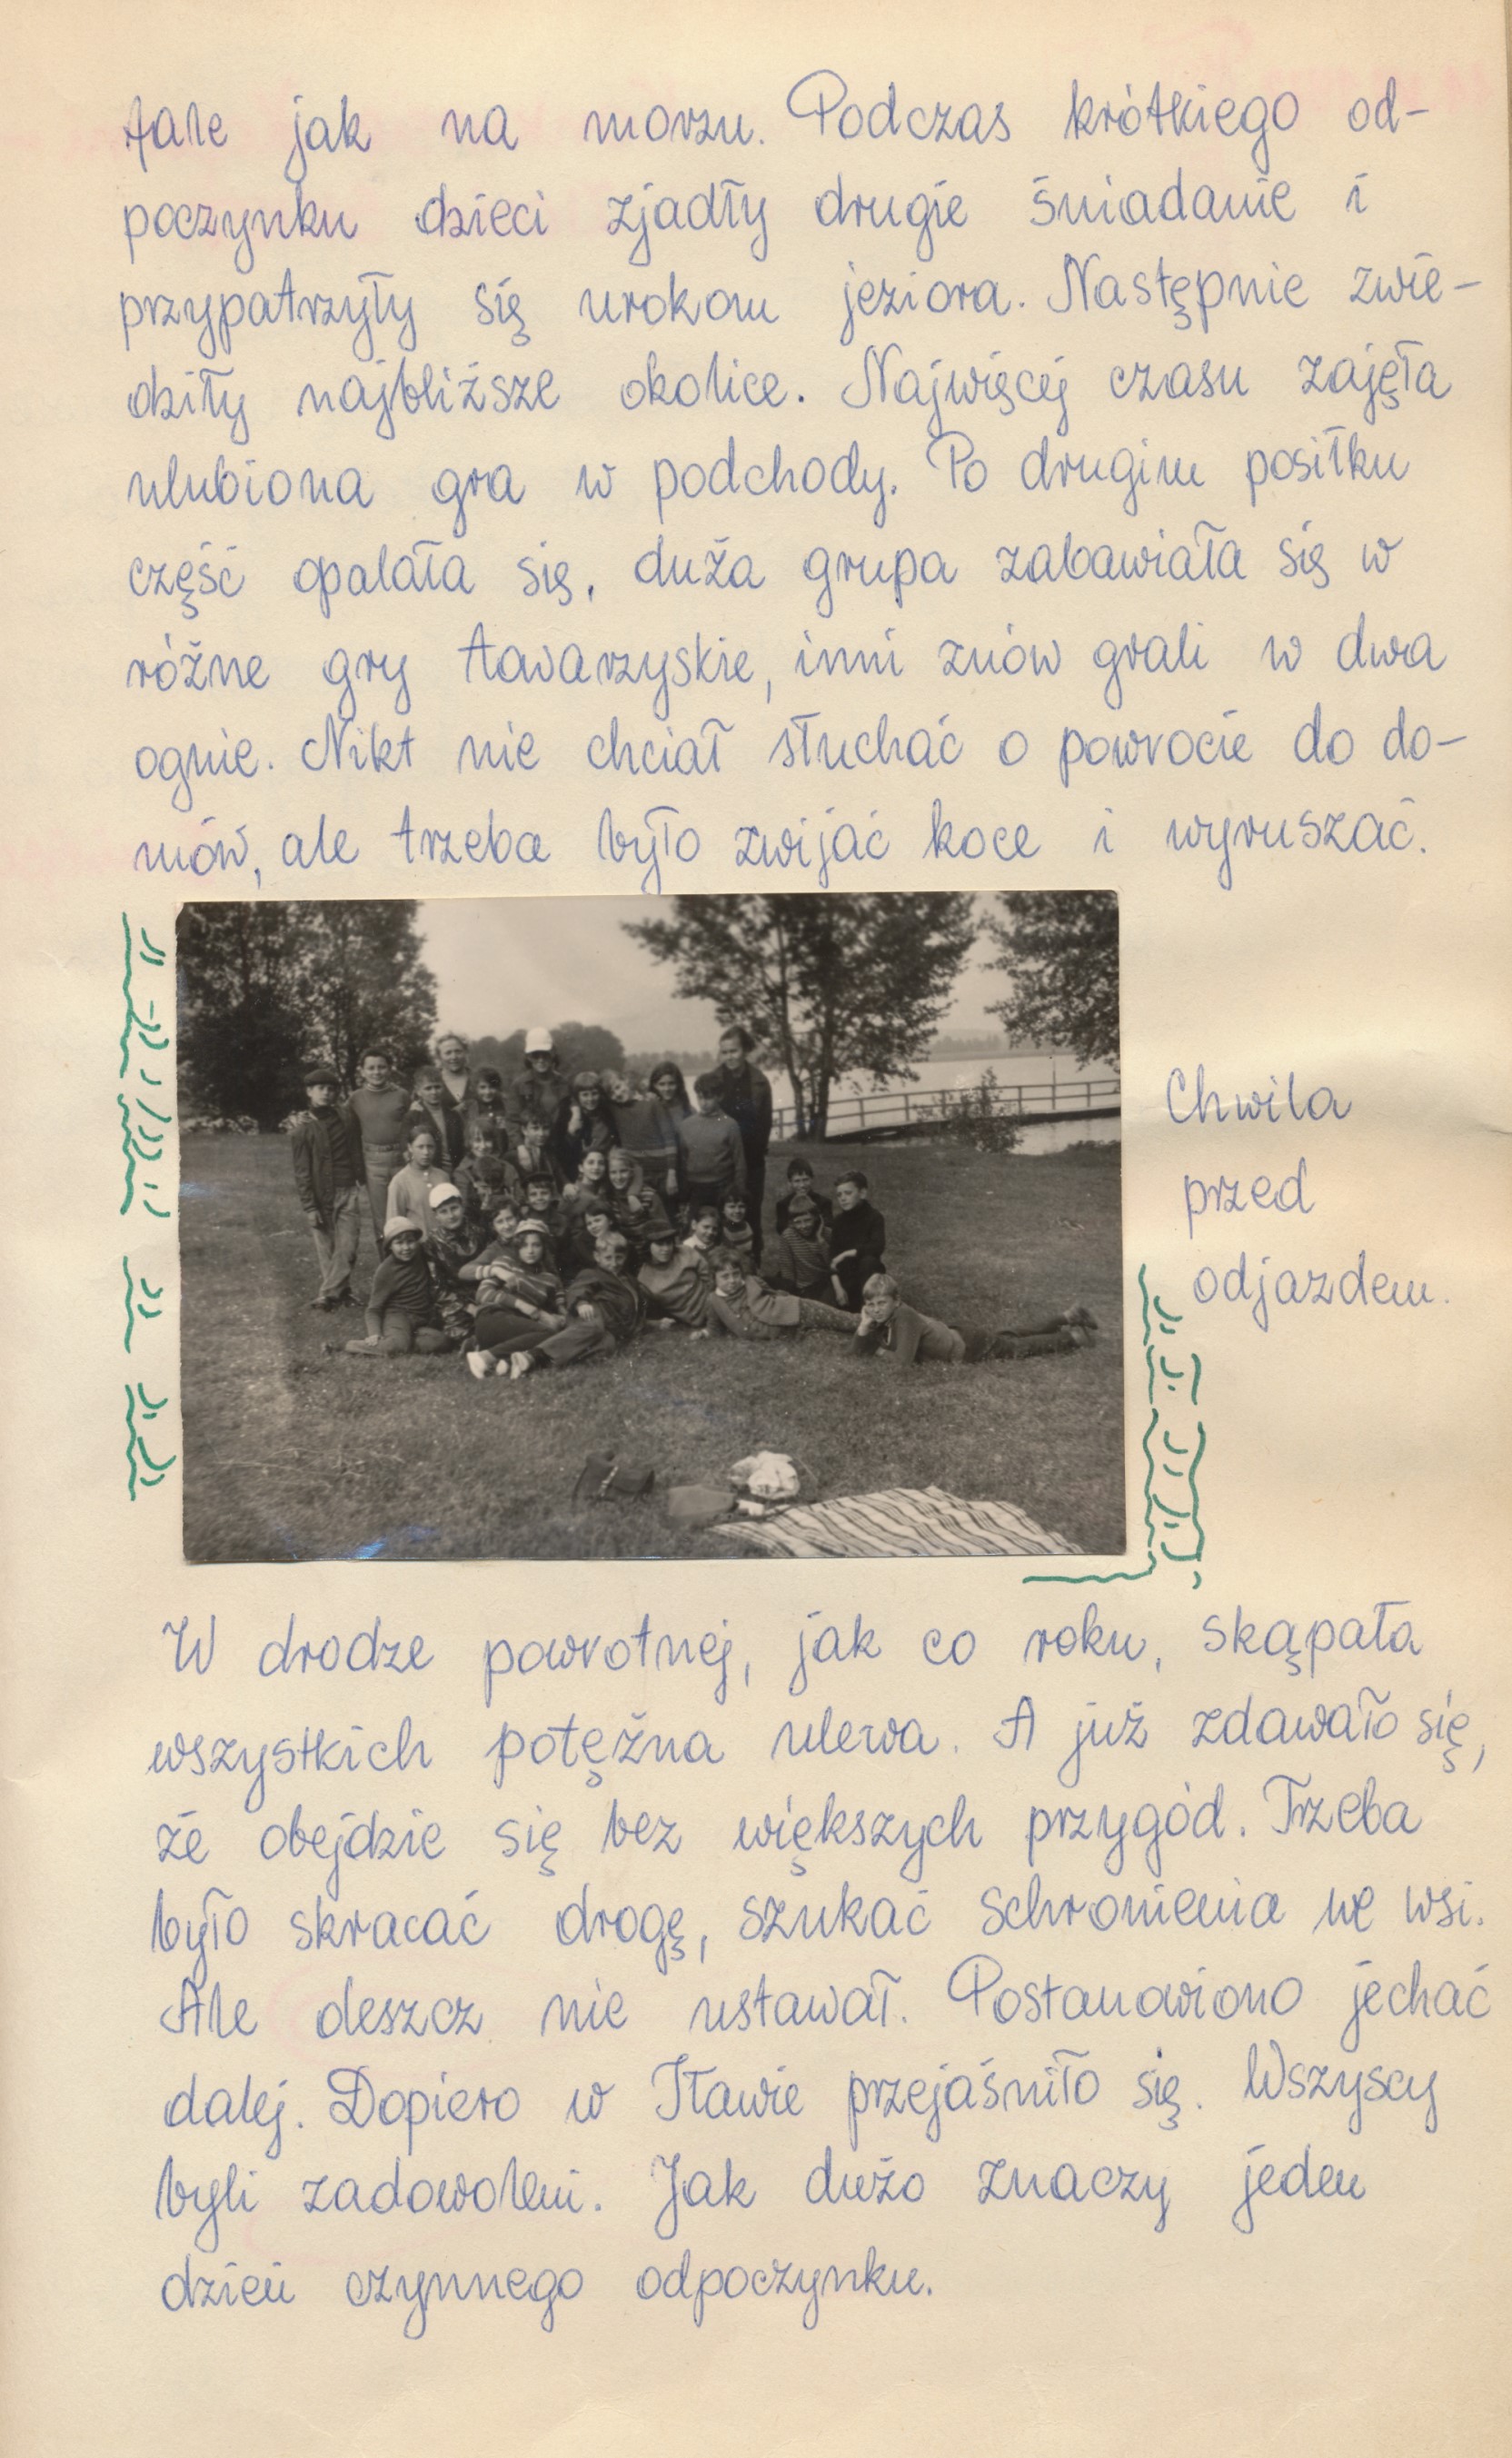 fale jak na morzu. Podczas krótkiego od-
poczynku dzieci zjadły drugie śniadanie i
przypatrzyły się urokom jeziora. Następnie zwie-
dziły najbliższe okolice. Najwięcej czasu zajęła
ulubiona gra w podchody. Po drugim posiłku
część opalała się, duża grupa zabawiała się w
różne gry towarzyskie, inni znów grali w dwa
ognie. Nikt nie chciał słuchać o powrocie do do-
mów, ale trzeba było zwijać koce i wyruszać.
Chwila
przed
odjazdem.
W drodze powrotnej, jak co roku, skąpała
wszystkich potężna ulewa. A już zdawało się,
że obejdzie się bez większych przygód. Trzeba
było skracać drogę, szukać schronienia we wsi.
Ale deszcz nie ustawał. Postanowiono jechać
dalej. Dopiero w Iławie przejaśniło się. Wszyscy
byli zadowoleni. Jak dużo znaczy jeden
dzień czynnego odpoczynku.